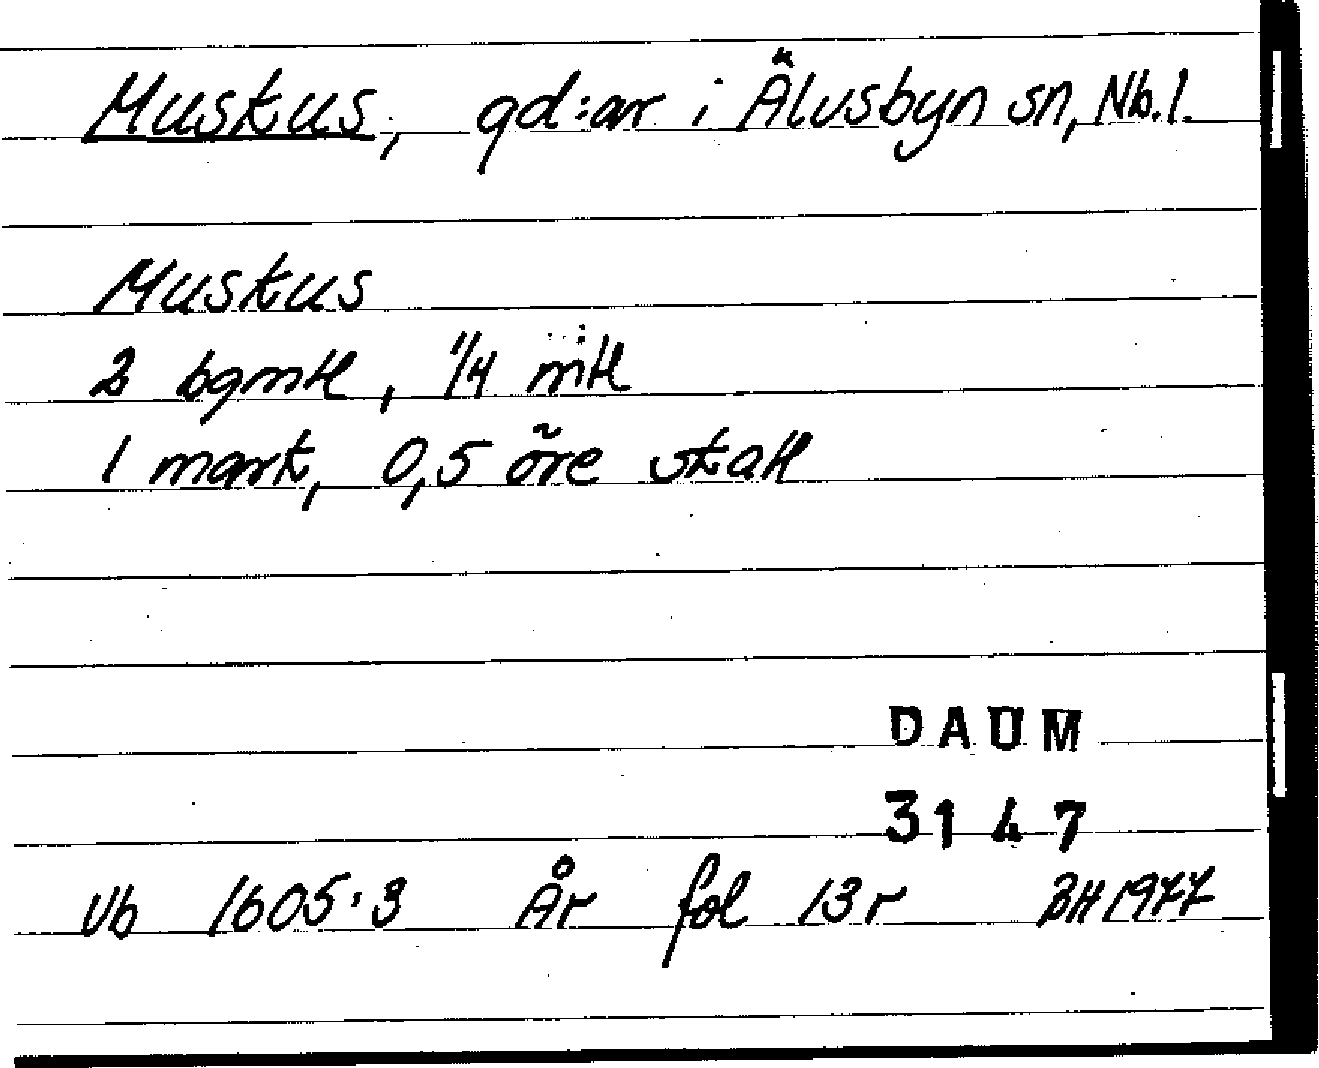 Muskus, gd:ar i Älvsbyn sn, Nb.l.
Muskus
2 bgmtl, 1/4 mtl
1 mark, 0,5 öre skatt
DAUM
3147
Vb 1605:3 År fol 13r BH 1977